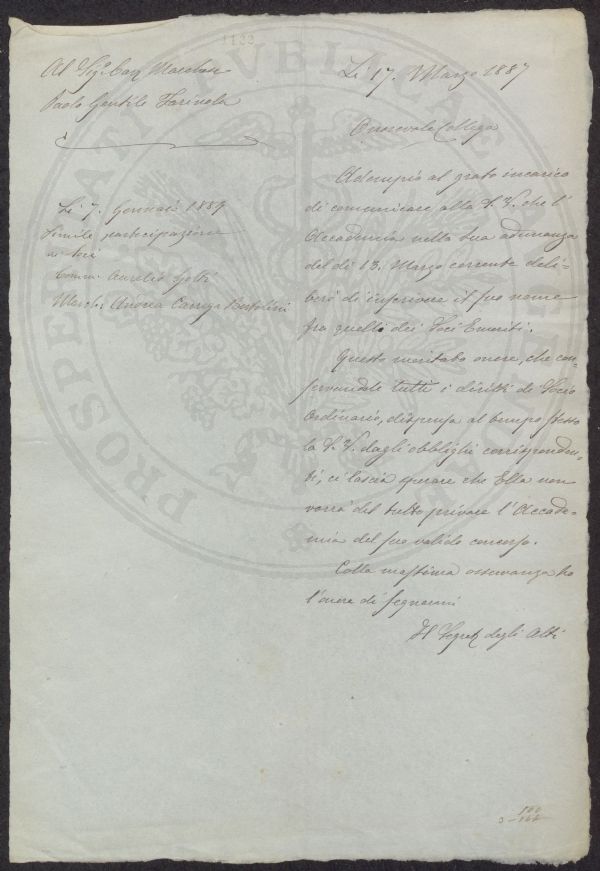 1122
Al Sig. Cav. Marchese
Paolo Gentile Farinola
Li 7. Gennaio 1889
Simile partecipazione
ai Soci
Comm. Aurelio Gotti
March. Andrea Carrega Bertolini
Li 17. Marzo 1887
Onorevole Collega
Adempio al grato incarico
di comunicare alla S. V. che l'
Accademia nella sua adunanza
del dì 13. Marzo corrente deli-
berò di inscrivere il suo nome
fra quelli dei Soci Emeriti.
Questo meritato onore, che con-
servandole tutti i diritti di Socio
Ordinario, dispensa al tempo stesso
la S. V. dagli obblighi corrisponden-
ti, ci lascia sperare che Ella non
vorrà del tutto privare l'Accade-
mia del suo valido concorso.
Colla massima osservanza ho
l'onore di segnarmi
Il Segret. degli Atti
PROSPERITATI PVBLICAE AVGENDAE